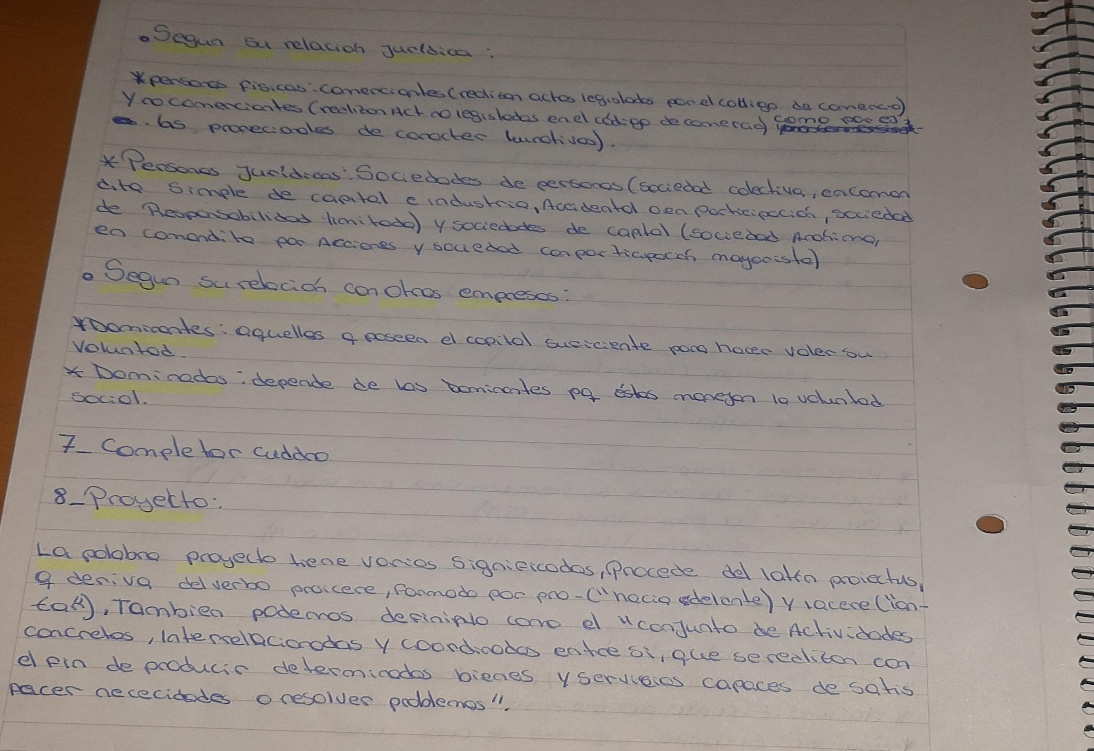 • Segun su relacion juridica:
* personas fisicas: comerciantes (realizan actos legislados por el codigo de comercio)
y no comerciantes (realizan Act no legisladas en el código de comercio) como por ej
. las proveccionales de caracter lucrativas).
* Personas Juridicas: Sociedades de personas (sociedad colectiva, encoman
dita simple de capital e industria, Accidental o en participacion, sociedad
de Responsabilidad limitada) y sociedades de capital (sociedad Anonima,
en comandita por Acciones y sociedad con participacion mayorista)
• Segun su relación con otras empresas:
* Dominantes: aquellas q poseen el capital suficiente para hacer valer su
voluntad.
* Dominadas: depende de las dominantes pq éstas manejan la voluntad
social.
7_ Completar cuadro
8_ Proyecto:
La palabra proyecto tiene varios significados, Procede del latín proiectus,
q deriva del verbo proicere, formado por pro-("hacia adelante) y iacere ("lan-
zar"), Tambien podemos definirlo como el "conjunto de Actividades
concretas, Interrelacionadas y coordinadas entre si, que se realizan con
el fin de producir determinados bienes y servicios capaces de satis
facer nececidades o resolver problemas".